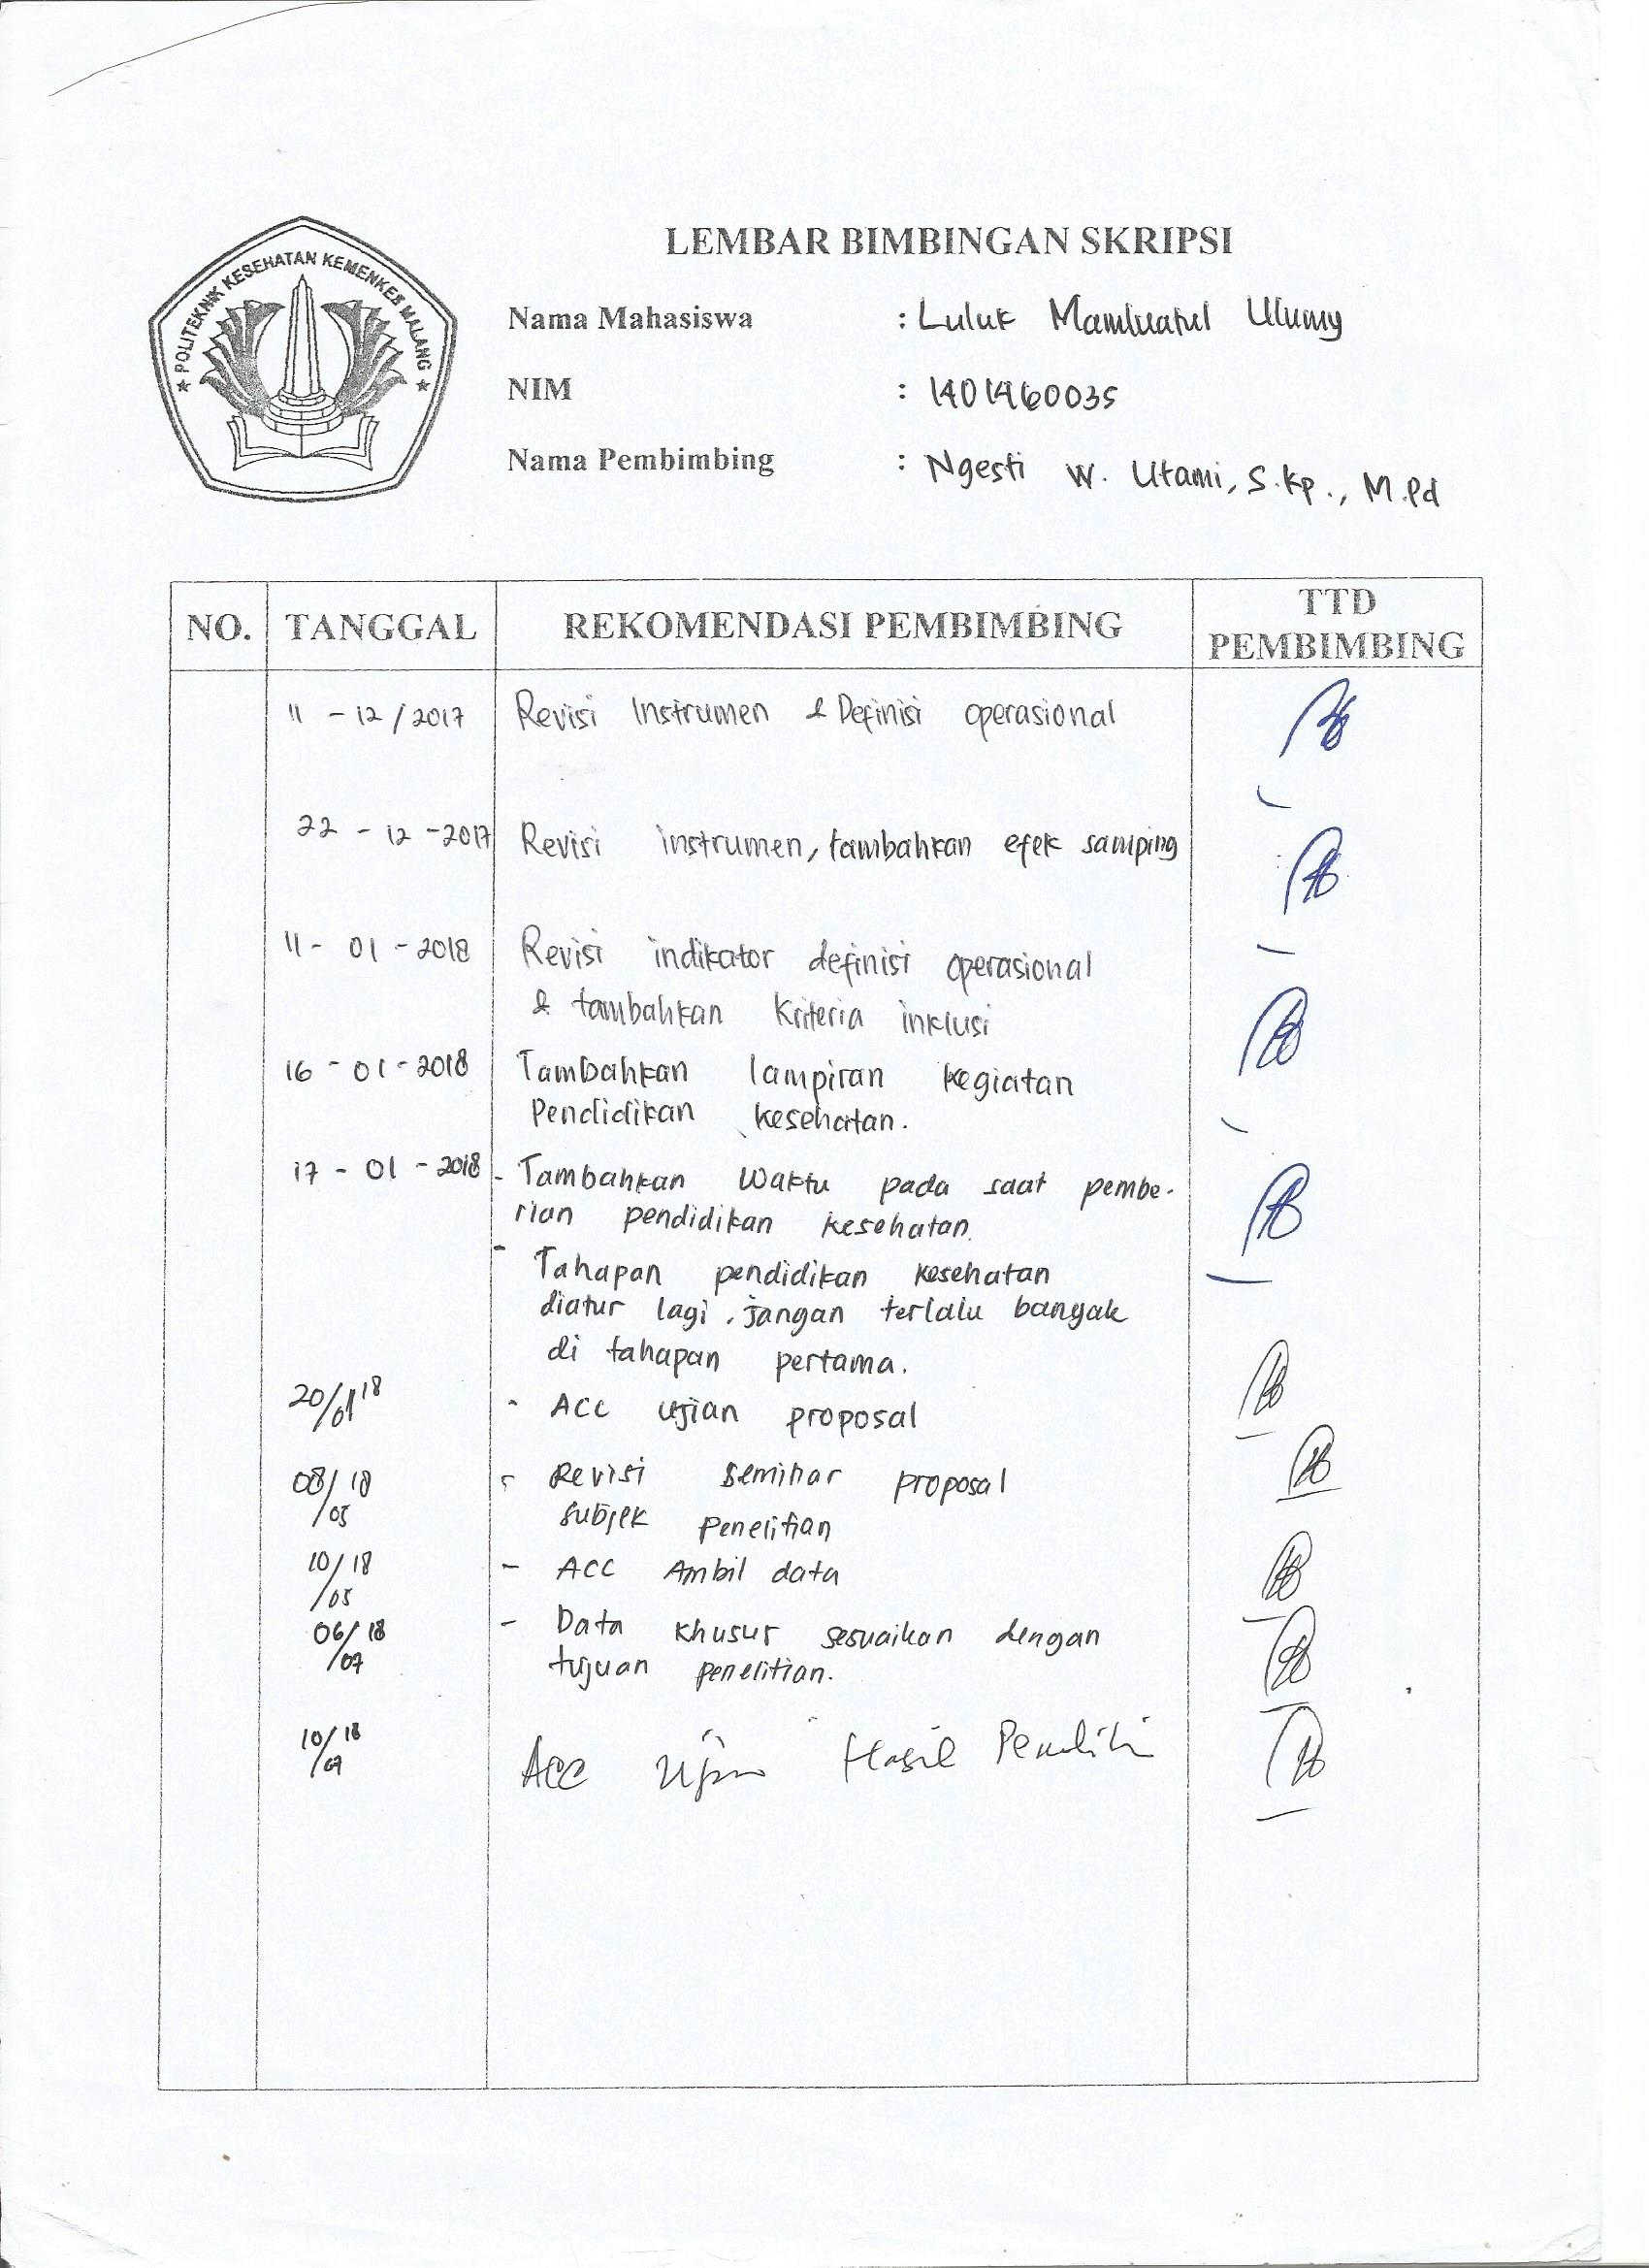 POLITEKNIK KESEHATAN KEMENKES MALANG
LEMBAR BIMBINGAN SKRIPSI
Nama Mahasiswa : Luluk Mamluatul Ulumy
NIM : 1401460035
Nama Pembimbing : Ngesti W. Utami, S.Kp., M.Pd
NO. TANGGAL REKOMENDASI PEMBIMBING TTD PEMBIMBING
11 - 12 / 2017 Revisi Instrumen & Definisi operasional
22 - 12 - 2017 Revisi instrumen, tambahkan efek samping
11 - 01 - 2018 Revisi indikator definisi operasional
& tambahkan kriteria inklusi
16 - 01 - 2018 Tambahkan lampiran kegiatan
Pendidikan kesehatan.
17 - 01 - 2018 - Tambahkan waktu pada saat pembe-
rian pendidikan kesehatan.
- Tahapan pendidikan kesehatan
diatur lagi, jangan terlalu banyak
di tahapan pertama.
20/01 18 - ACC ujian proposal
08/05 18 - Revisi seminar proposal
subjek penelitian
10/05 18 - ACC Ambil data
06/07 18 - Data khusus sesuaikan dengan
tujuan penelitian.
10/07 18 Acc Ujian Hasil